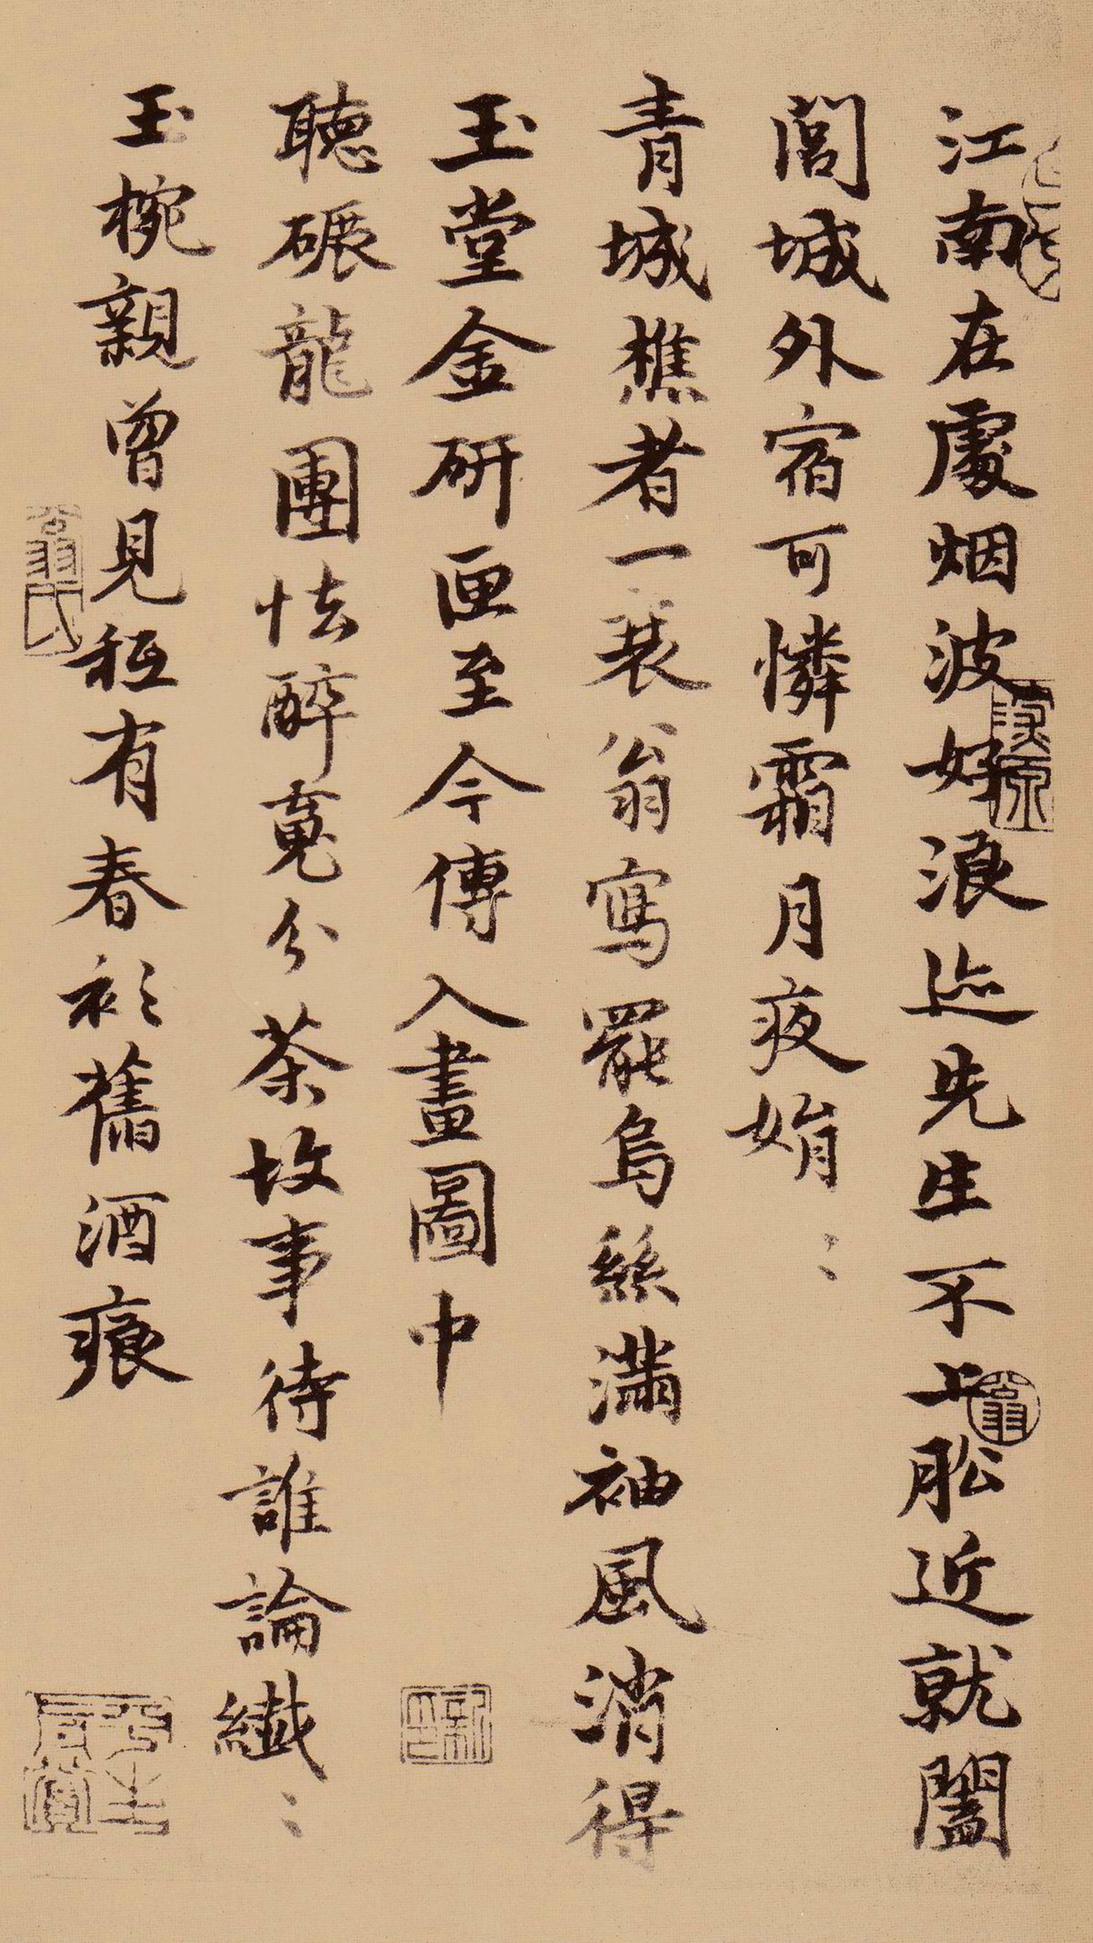 江南在處烟波好浪迹先生不上舩近就闔
閭城外宿可憐霜月夜娟〻
青城樵者一裘翁寫罷烏絲滿袖風消得
玉堂金研匣至今傳入畫圖中
聽碾龍團怯醉魂分茶故事待誰論纖〻
玉椀親曾見秪有春衫舊酒痕